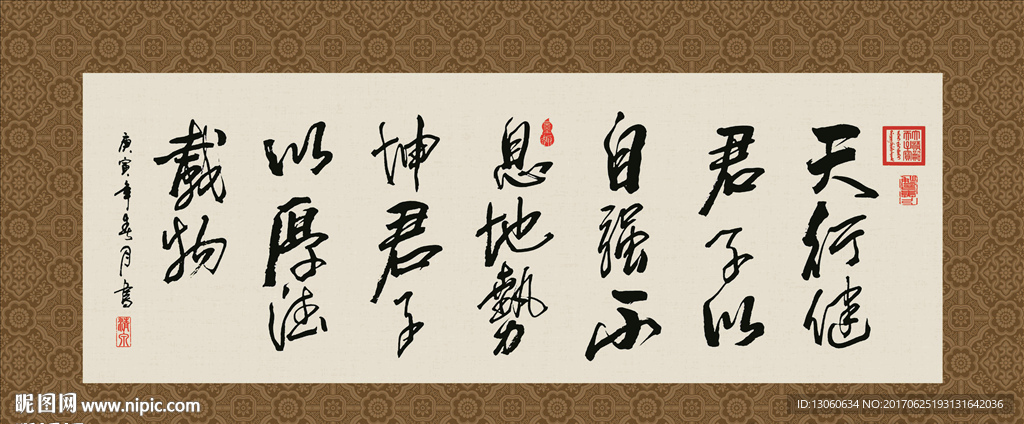 天行健
君子以
自强不
息地勢
坤君子
以厚德
載物
庚寅年春月書
昵图网 www.nipic.com
ID:13060634 NO:20170625193131642036